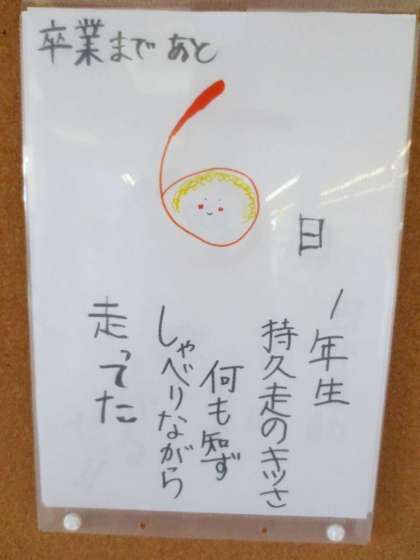 卒業まであと
6
日
1年生
持久走のキツさ
何も知ず
しゃべりながら
走ってた